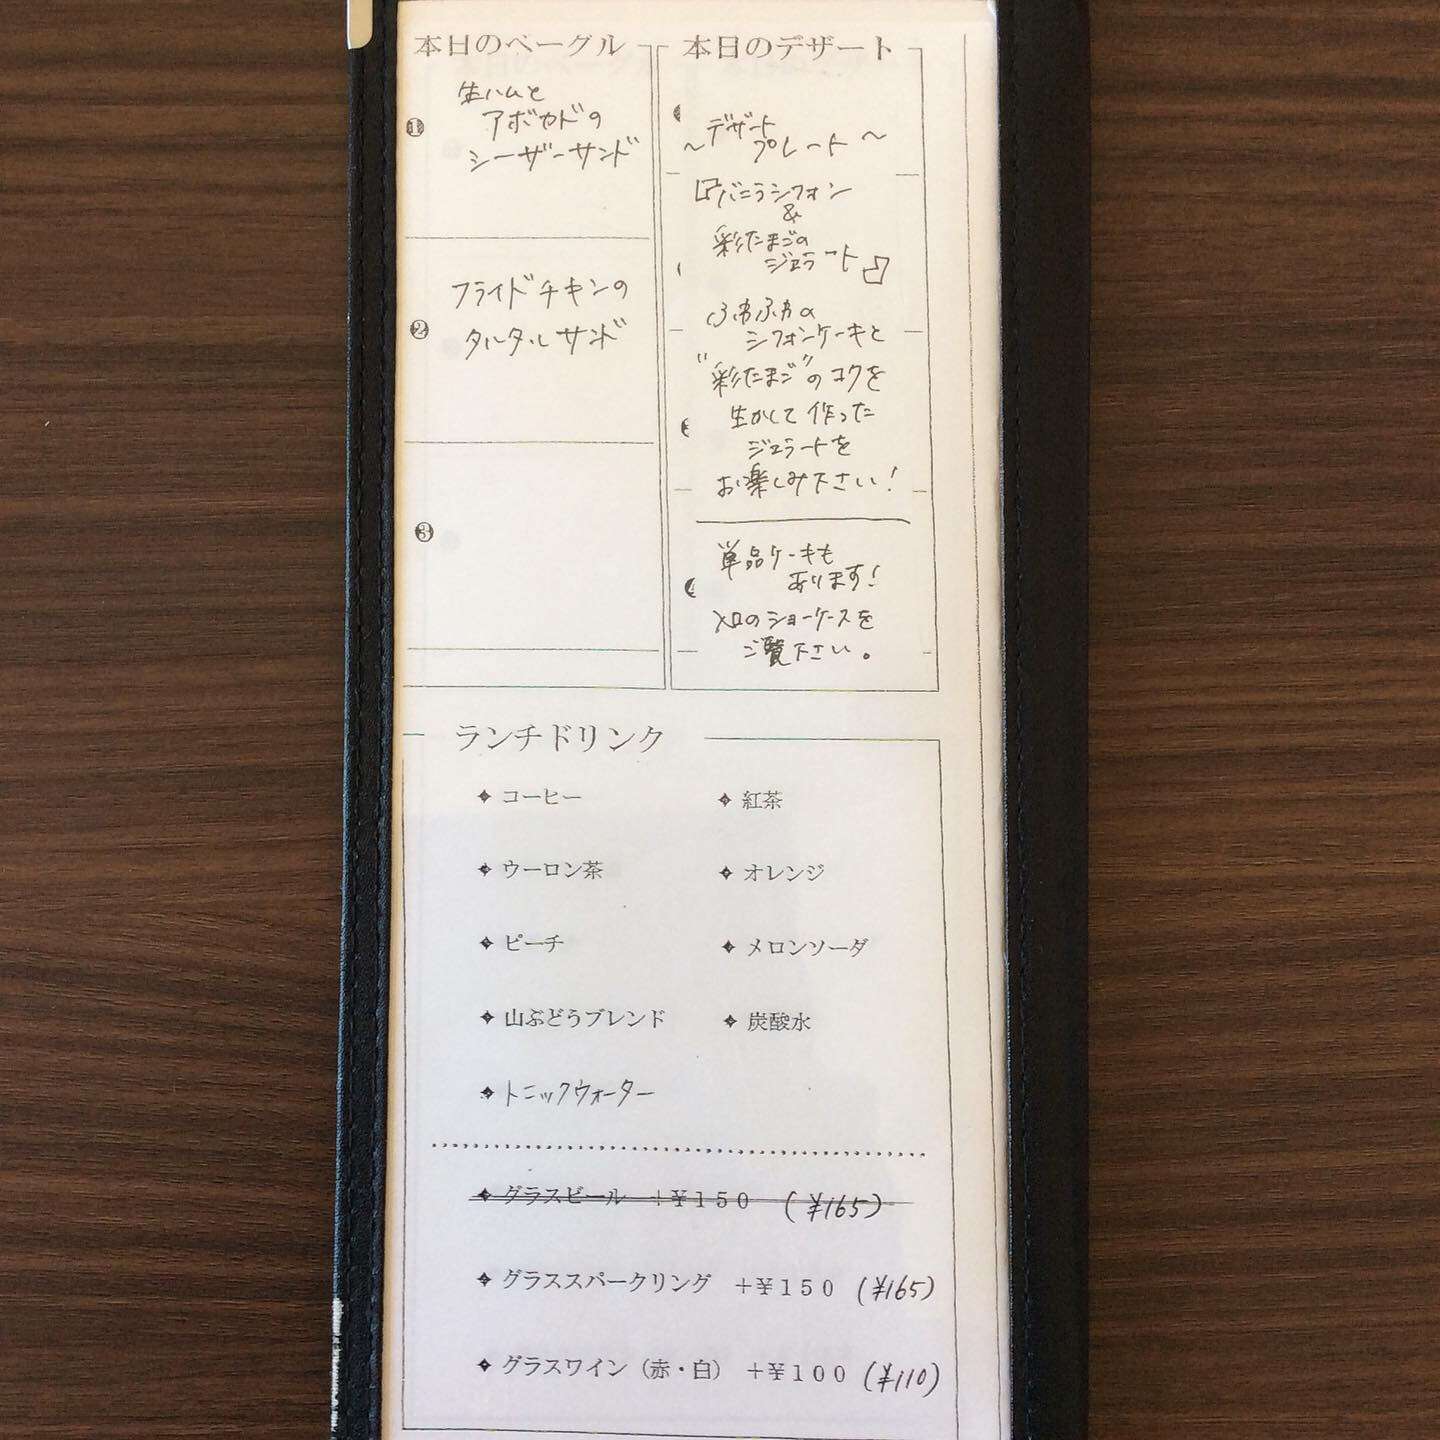 本日のベーグル
❶
生ハムと
アボカドの
シーザーサンド
❷
フライドチキンの
タルタルサンド
❸
本日のデザート
～デザート
プレート～
『バニラシフォン
&
彩たまごの
ジェラート』
ふわふわの
シフォンケーキと
"彩たまご"のコクを
生かして作った
ジェラートを
お楽しみ下さい!
単品ケーキも
あります!
入口のショーケースを
ご覧下さい。
ランチドリンク
コーヒー
紅茶
ウーロン茶
オレンジ
ピーチ
メロンソーダ
山ぶどうブレンド
炭酸水
トニックウォーター
グラスビール +¥150 (¥165)
グラススパークリング +¥150 (¥165)
グラスワイン(赤・白) +¥100 (¥110)